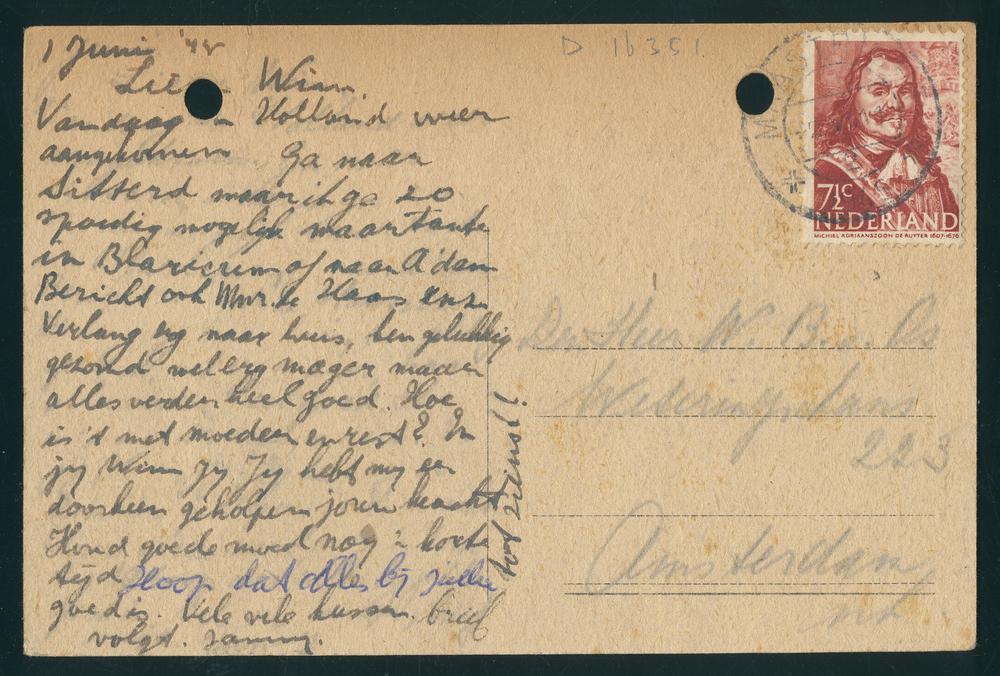 1 Juni '45
D 16351
Lie Wim.
Vandaag in Holland weer
aangekomen Ga naar
Sittard maar ik ga zo
spoedig mogelijk naar tante
in Blaricum of naar A'dam
Bericht ook Mvr. de Haas enz.
Verlang erg naar huis, ben gelukkig
gezond wel erg mager maar
alles verder heel goed. Hoe
is 't met moeder en rest? En
jy Wim jy. Jy hebt my er
doorheen geholpen jouw kracht
Houd goede moed nog 'n korte
tijd Hoop dat alles bij jullie
goed is. Vele vele kussen. brief
volgt. Sammy.
tot ziens!
MAAST
7½c
NEDERLAND
MICHIEL ADRIAANSZOON DE RUYTER 1607-1676
Den Heer W. B. Os
Weteringschans
223
Amsterdam